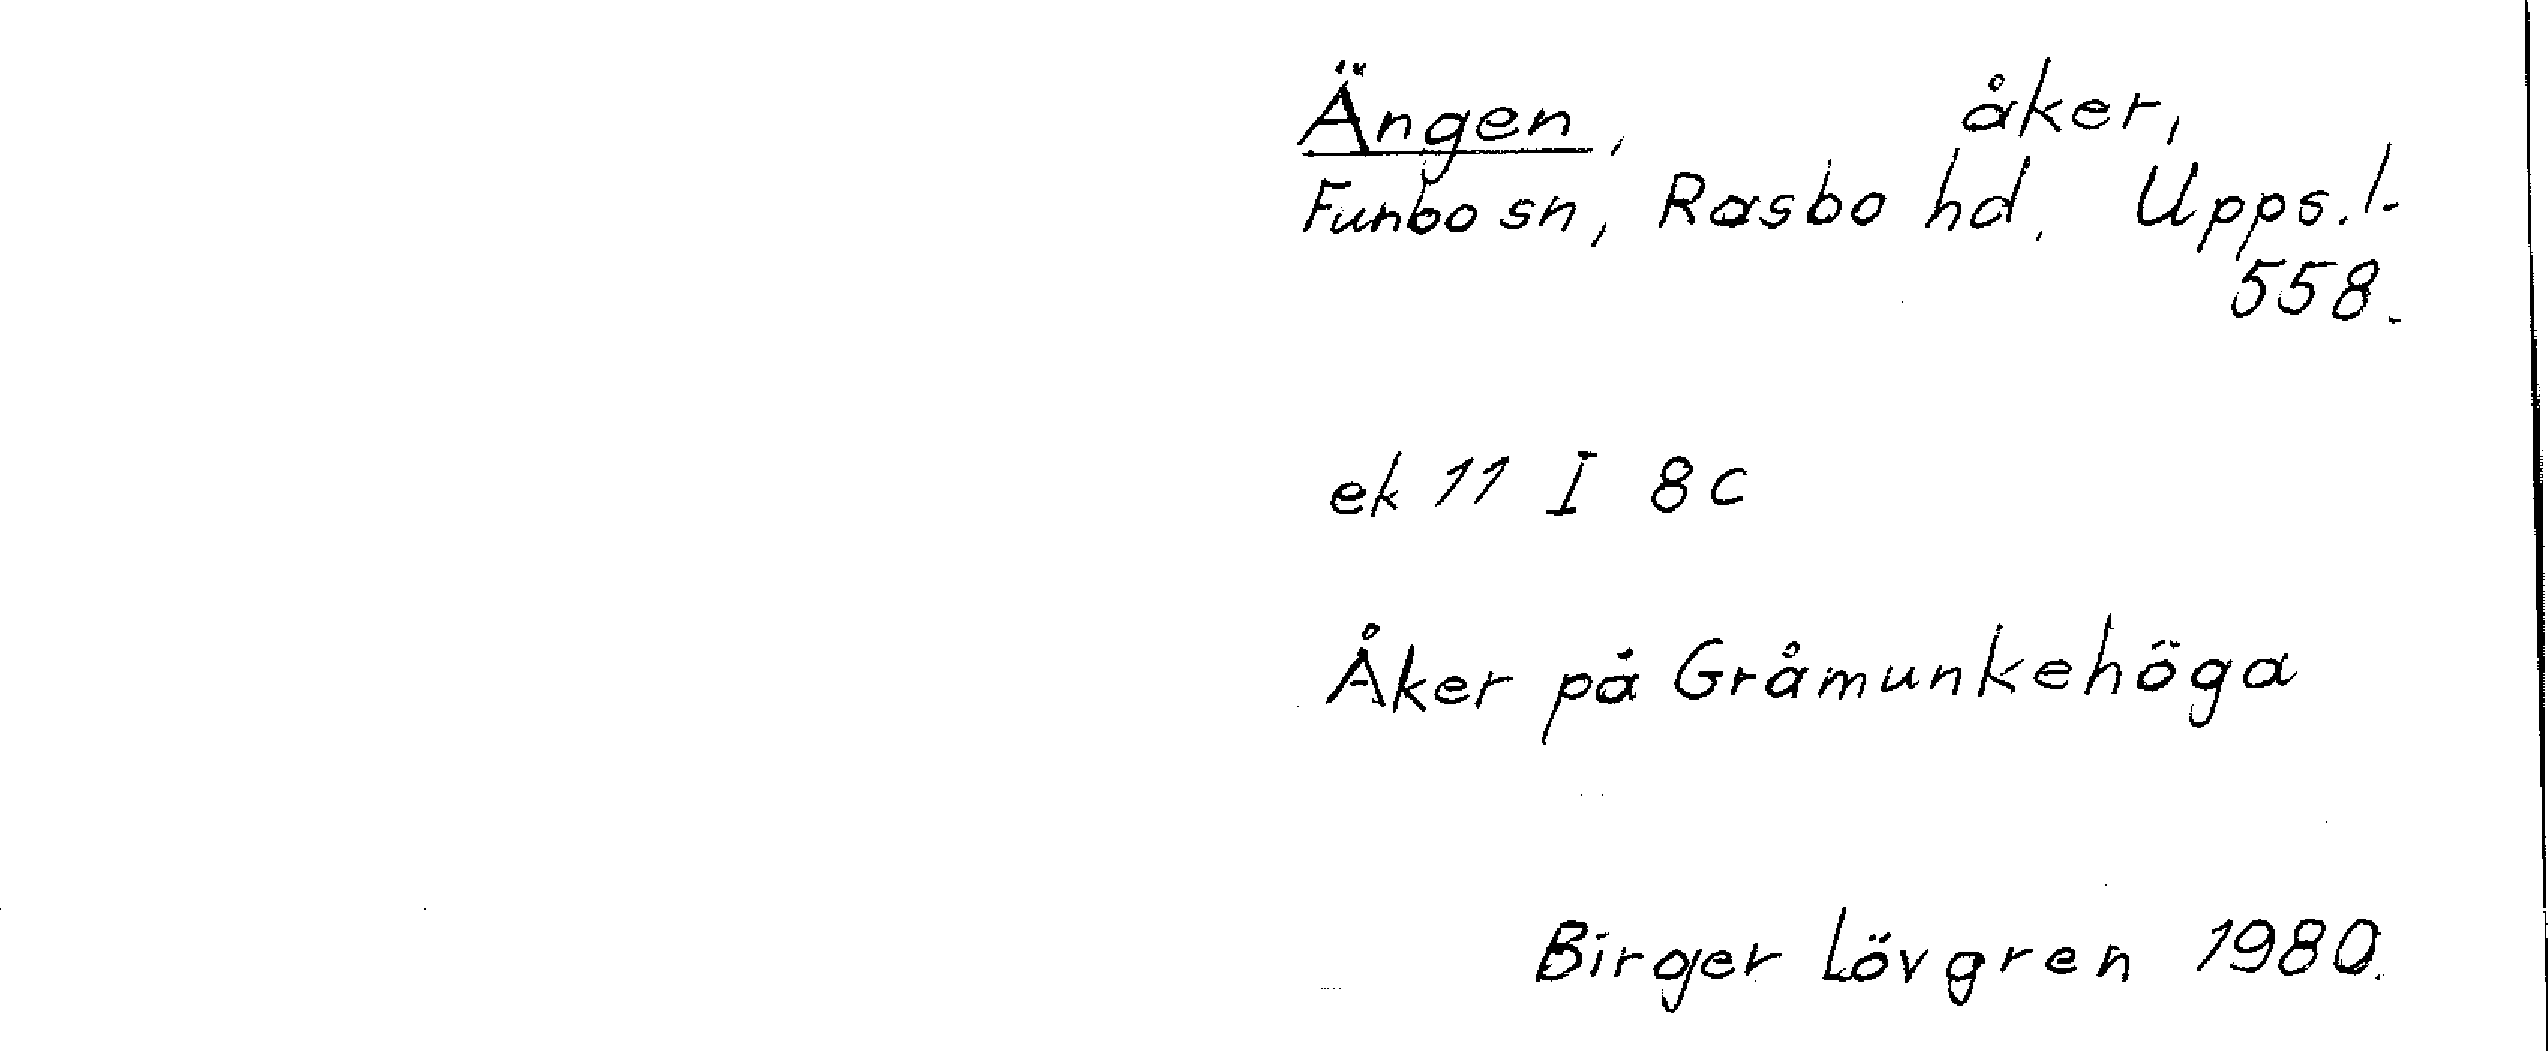 Ängen, åker,
Funbo sn, Rasbo hd, Upps.l.
558.
ek 11 I 8c
Åker på Gråmunkehöga
Birger Lövgren 1980.